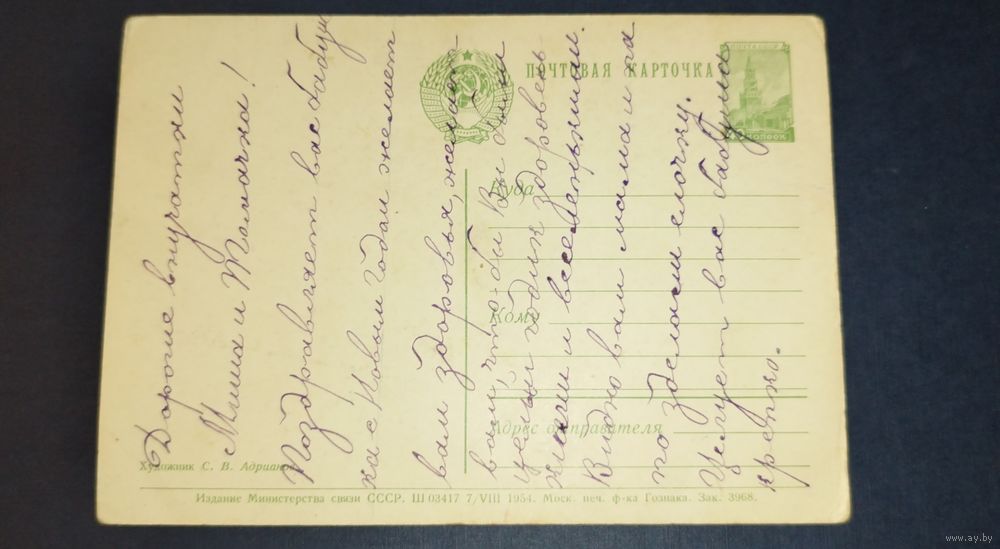 ПОЧТОВАЯ КАРТОЧКА
ПОЧТА СССР
КОПЕЕК
Куда
Кому
Адрес отправителя
Художник С. В. Адрианов
Издание Министерства связи СССР. Ш 03417 7/VIII 1954. Моск. печ. ф-ка Гознака. Зак. 3968.
Дорогие внучатки
Миша и Томочка!
Поздравляет вас бабуш
ка с Новым годом желает
вам здоровья, желаю
вам, что-бы Вы были
целый годик здоровень
кими и веселенькими.
Видно вам мама и па
па зделаем елочку.
Целует вас бабуш
крепко.
www.ay.by